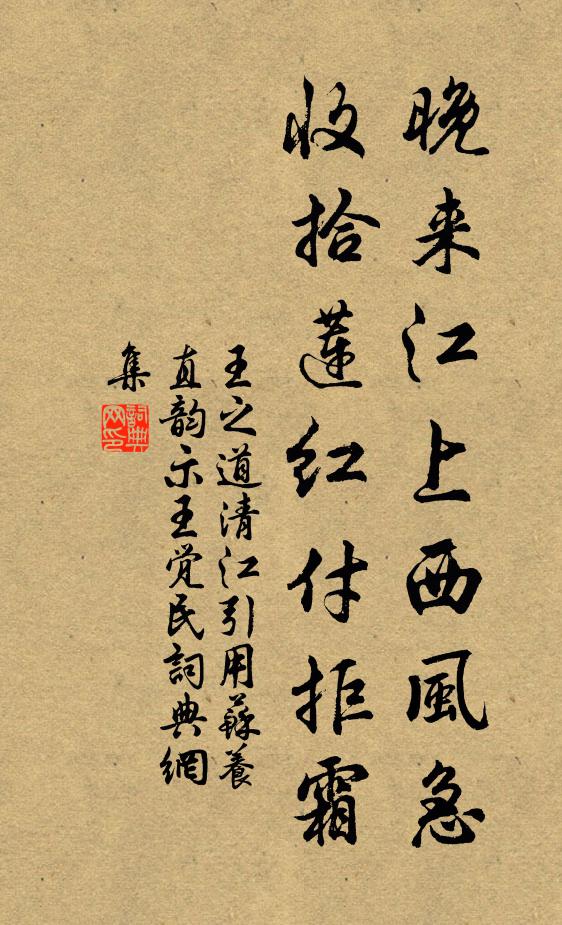 晚来江上西風急
收拾蓮红付拒霜
王之道清江引用蘇養
直韵示王觉民詞典網
集
詞典
网印